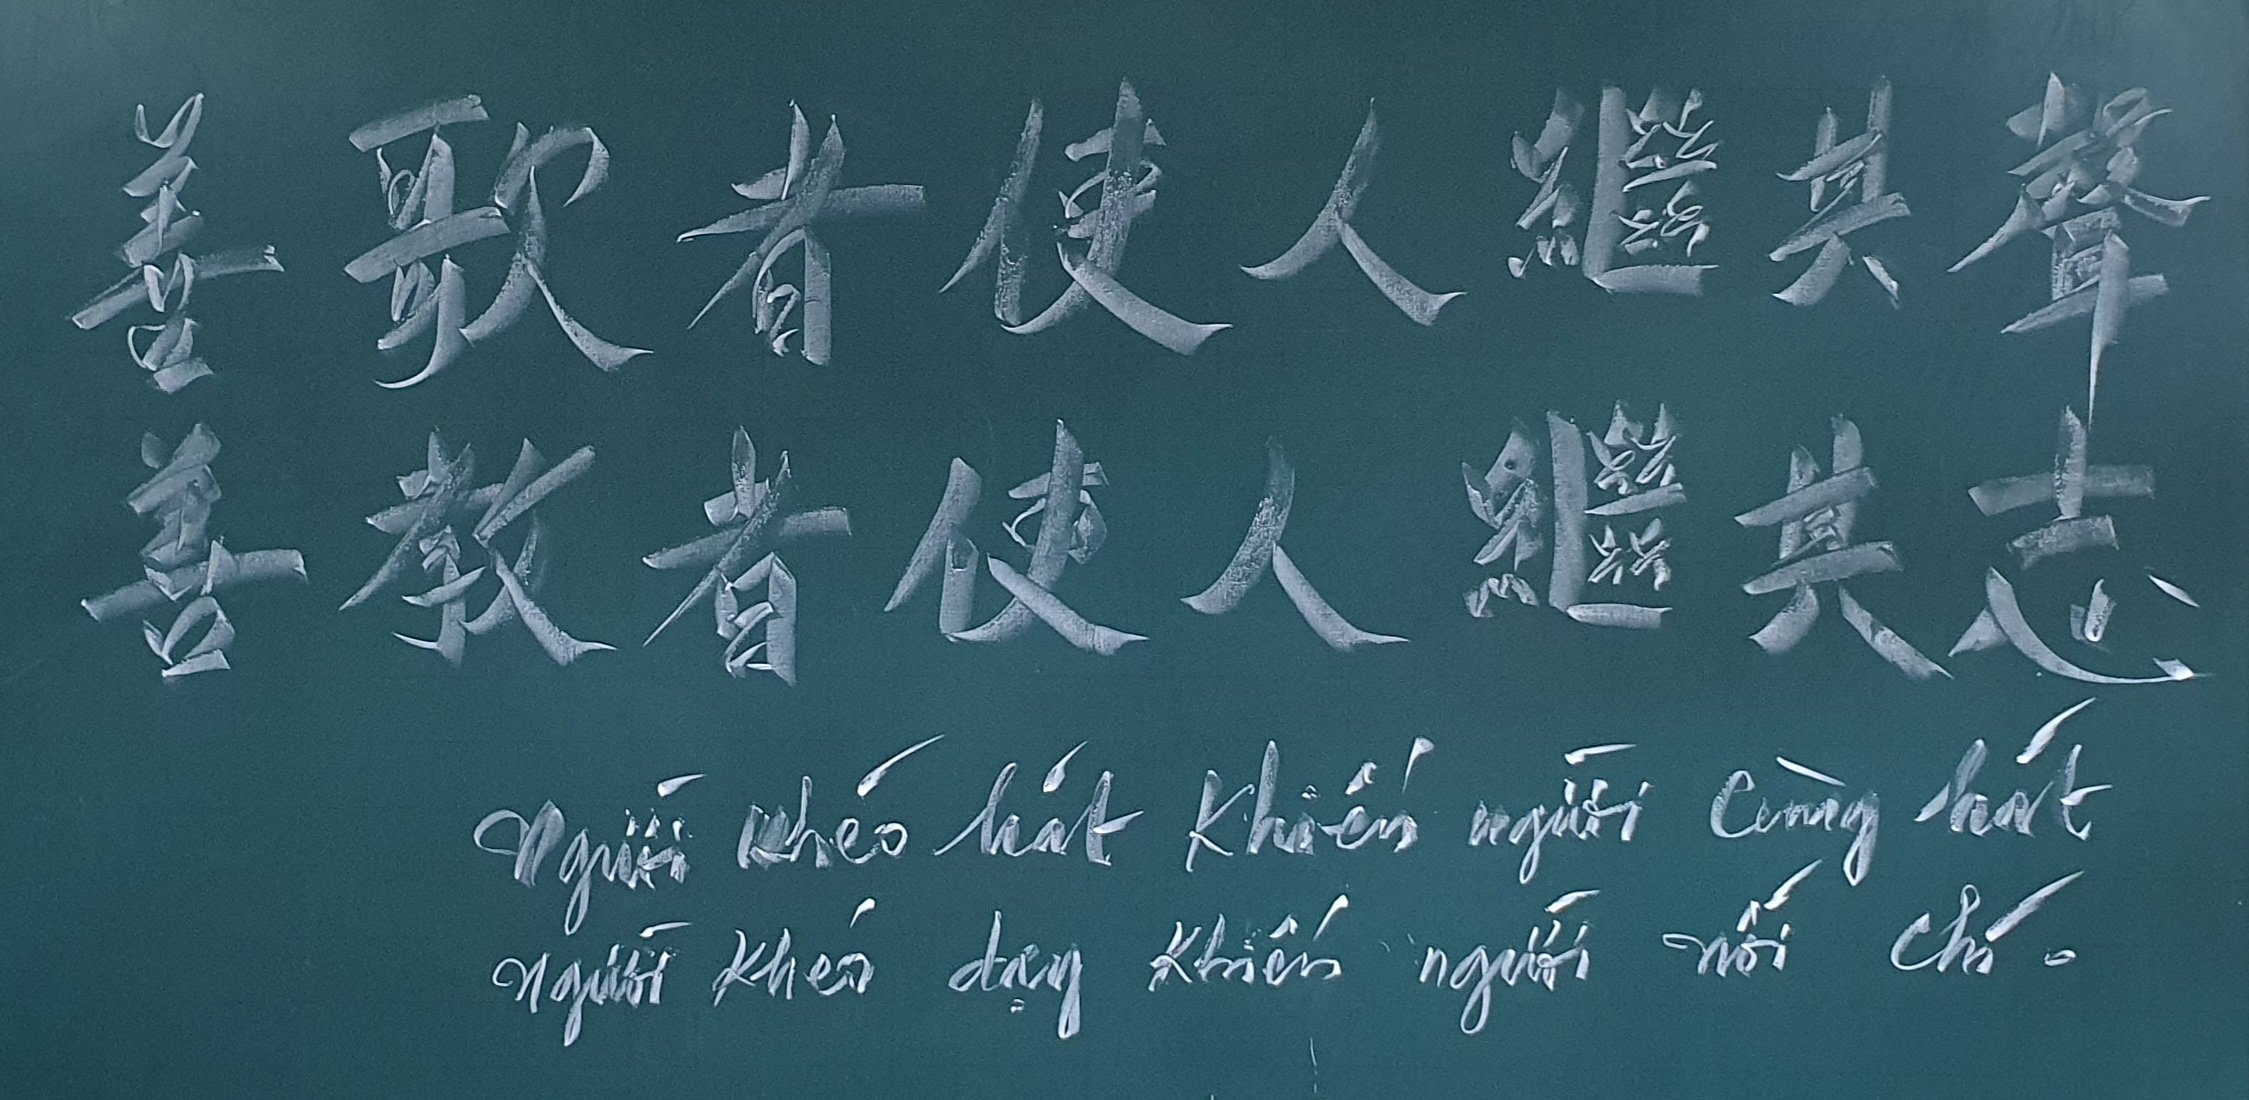 善歌者使人繼其聲
善教者使人繼其志
Người khéo hát khiến người cùng hát
Người khéo dạy khiến người nối chí.